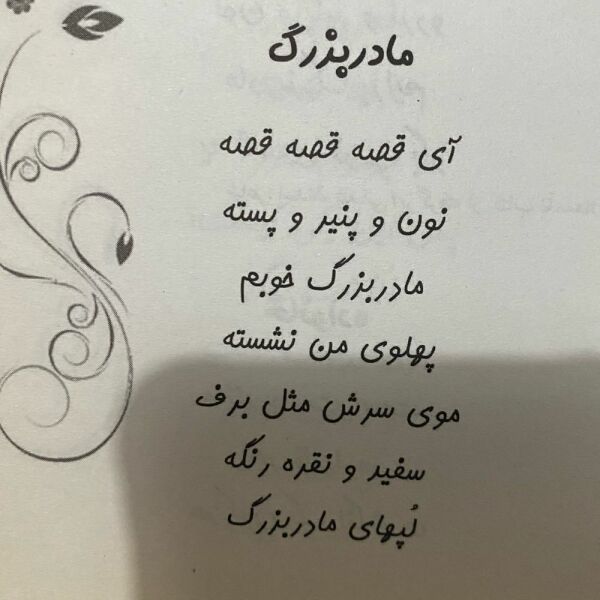 مادربزرگ
آی قصه قصه قصه
نون و پنیر و پسته
مادربزرگ خوبم
پهلوی من نشسته
موی سرش مثل برف
سفید و نقره رنگه
لُپهای مادربزرگ